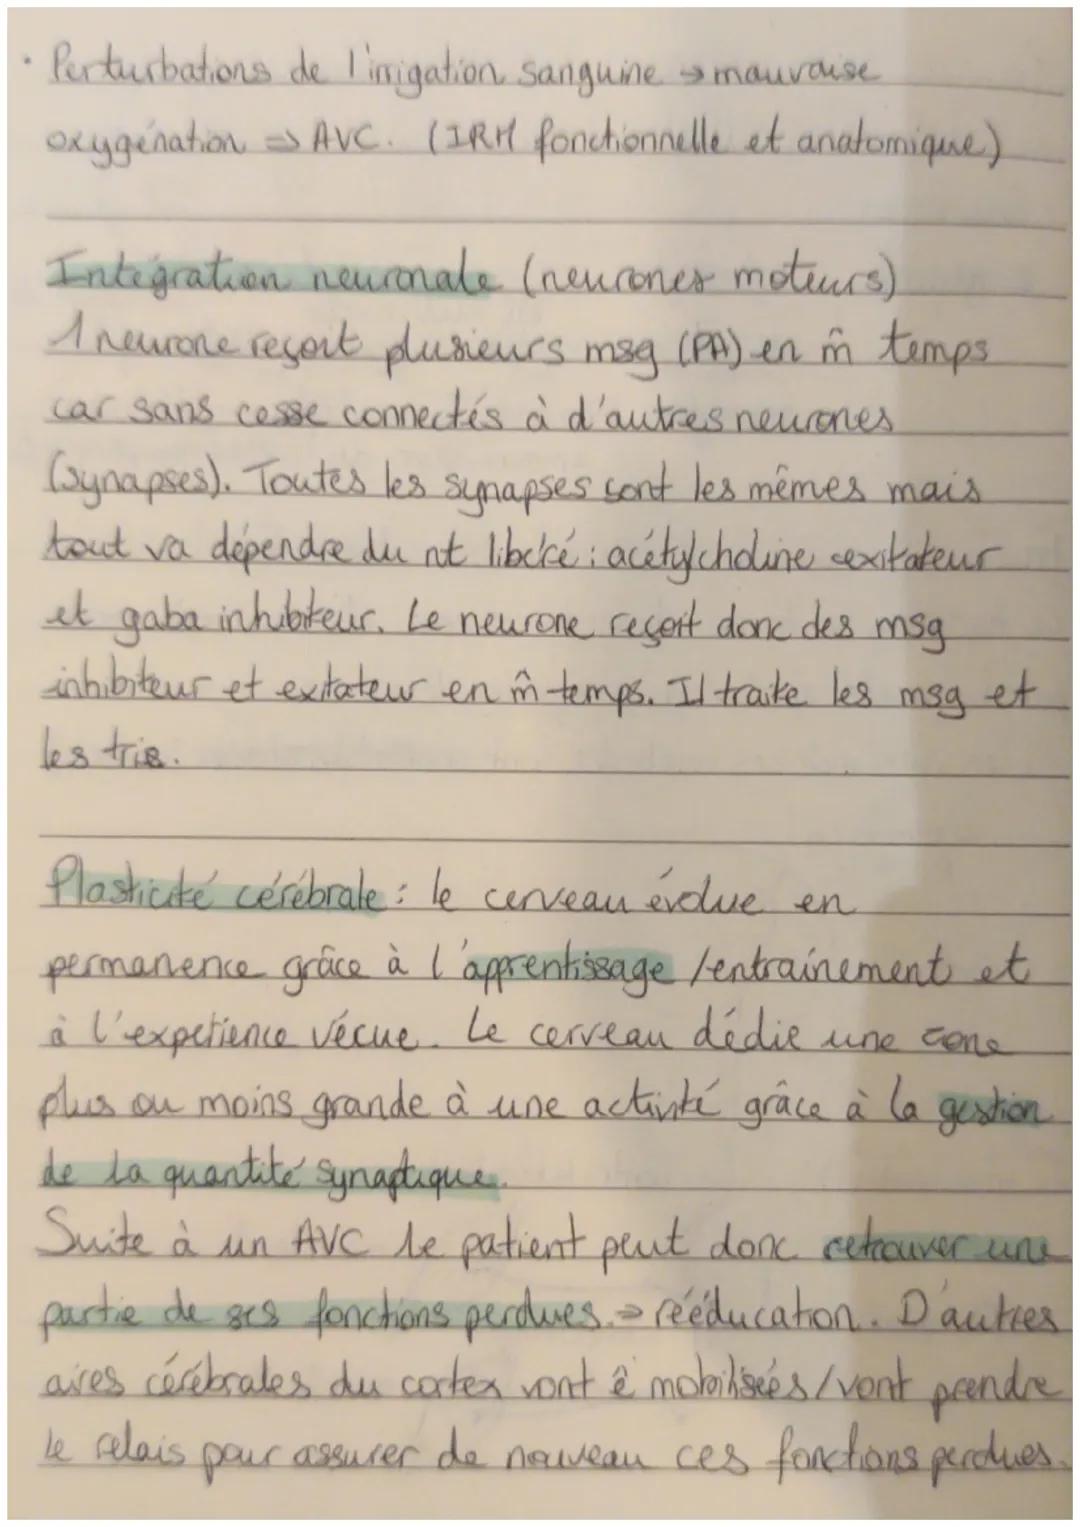 • Perturbations de l'irrigation sanguine → mauvaise
oxygénation ⇒ AVC. (IRM fonctionnelle et anatomique)
Intégration neuronale (neurones moteurs)
1 neurone reçoit plusieurs msg (PA) en m̂ temps
car sans cesse connectés à d'autres neurones
(synapses). Toutes les synapses sont les mêmes mais
tout va dépendre du nt libéré : acétylcholine exitateur
et gaba inhibiteur. Le neurone reçoit donc des msg
inhibiteur et exitateur en m̂ temps. Il traite les msg et
les trie.
Plasticité cérébrale : le cerveau évolue en
permanence grâce à l'apprentissage /entraînement et
à l'expérience vécue. Le cerveau dédie une zone
plus ou moins grande à une activité grâce à la gestion
de la quantité synaptique.
Suite à un AVC le patient peut donc retrouver une
partie de ses fonctions perdues. → rééducation. D'autres
aires cérébrales du cortex vont ê mobilisées/vont prendre
le relais pour assurer de nouveau ces fonctions perdues.